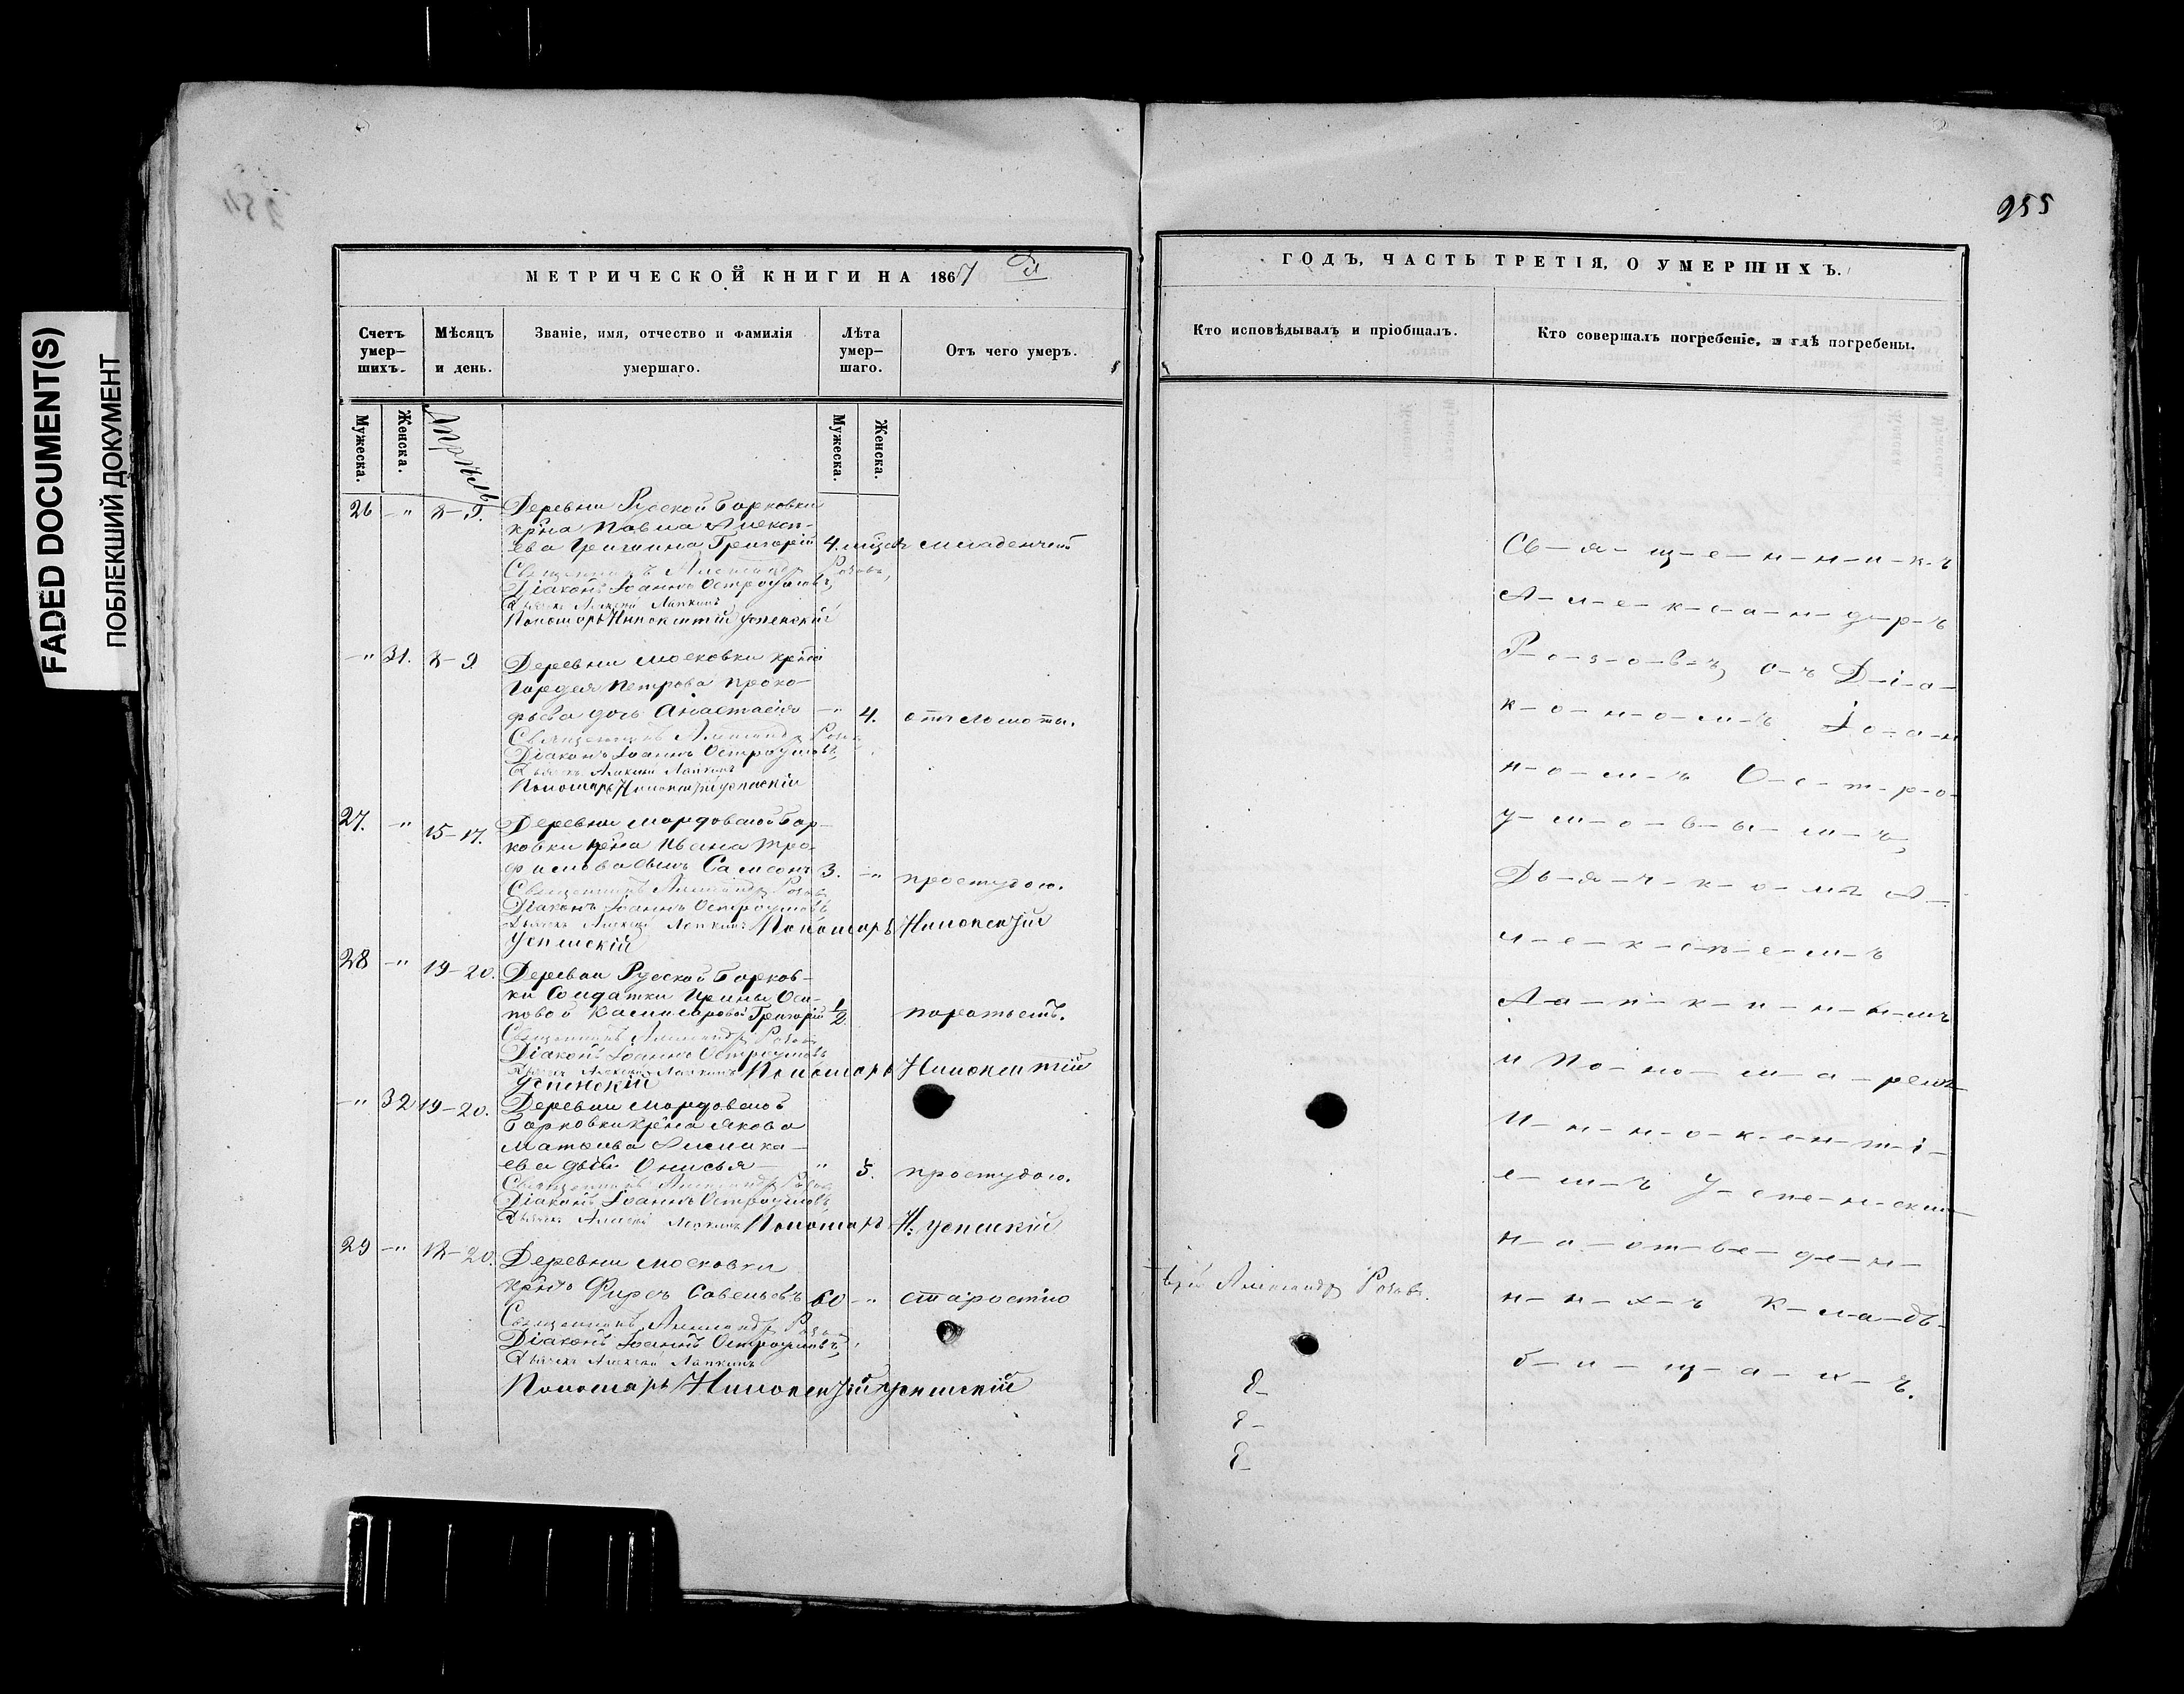 FADED DOCUMENT(S)
ПОБЛЕКШИЙ ДОКУМЕНТ
255
МЕТРИЧЕСКОЙ КНИГИ НА 1867 й
Счетъ умер-шихъ.
Мѣсяцъ и день.
Званіе, имя, отчество и фамилія умершаго.
Лѣта умер-шаго.
Отъ чего умеръ.
Мужеска.
Женска.
Апрѣль
Мужеска.
Женска.
26 -"- Деревни Русской Борковки
крна Павла Алексѣ-
ева Гришина Григорій 4. младенчес
Священникъ Александр Розовъ,
Діаконъ Іоаннъ Остроумовъ,
Дьячекъ Алексѣй Лапкинъ
Пономарь Иннокентій Успенскій
-"- 31. 8-9 Деревни Московки крна
Гордея Петрова Проко-
фьева дочь Анастасія -"- 4. отъ ломоты.
Священникъ Александр Розовъ
Діаконъ Іоаннъ Остроумовъ,
Дьячекъ Алексѣй Лапкинъ
Пономарь Иннокентій Успенскій
27. -"- 15-17. Деревни Мордовской Бор-
ковки крна Ивана Тро-
фимова сынъ Самсонъ 3. -"- простудою.
Священникъ Александр Розовъ
Діаконъ Іоаннъ Остроумовъ
Дьячекъ Алексѣй Лапкинъ Пономарь Иннокентій
Успенскій
28 -"- 19-20. Деревни Русской Борков-
ки Солдатки Ирины Оси-
повой Григорій 1/2
Священникъ Александр Розовъ
Діаконъ Іоаннъ Остроумовъ
Дьячекъ Алексѣй Лапкинъ Пономарь Иннокентій
Успенскій
-"- 32 19-20. Деревни Мордовской
Борковки крна Якова
Матвѣева
ева Онисья -"- 5. простудою.
Священникъ Александр Розовъ
Діаконъ Іоаннъ Остроумовъ
Дьячекъ Алексѣй Лапкинъ Пономарь И. Успенскій
29 -"- 18-20. Деревни Московки
крнъ Фирсъ Савельевъ 60 -"- старостію
Священникъ Александр Розовъ
Діаконъ Іоаннъ Остроумовъ,
Дьячекъ Алексѣй Лапкинъ
Пономарь Иннокентій Успенскій
ГОДЪ, ЧАСТЬ ТРЕТІЯ, О УМЕРШИХЪ.
Кто исповѣдывалъ и пріобщалъ.
Кто совершалъ погребеніе, и гдѣ погребены.
Александр Розовъ.
Св-я-щ-е-н-н-и-к-ъ
А-л-е-к-с-а-н-д-р-ъ
Р-о-з-о-в-ъ, с-ъ Д-і-а-
к-о-н-о-м-ъ І-о-а-н
н-о-м-ъ О-с-т-р-о-
у-м-о-в-ы-м-ъ,
Дь-я-ч-к-о-мъ А-
л-е-к-с-ѣ-е-м-ъ
Л-а-п-к-и-н-ы-мъ
и По-но-м-а-ремъ
И-н-н-о-к-е-н-т-і-
е-м-ъ У-с-пе-н-ским-
н-а от-ве-д-е-н-
н-ы-х-ъ К-л-а-дъ-
б-и-щ-а-х-ъ.